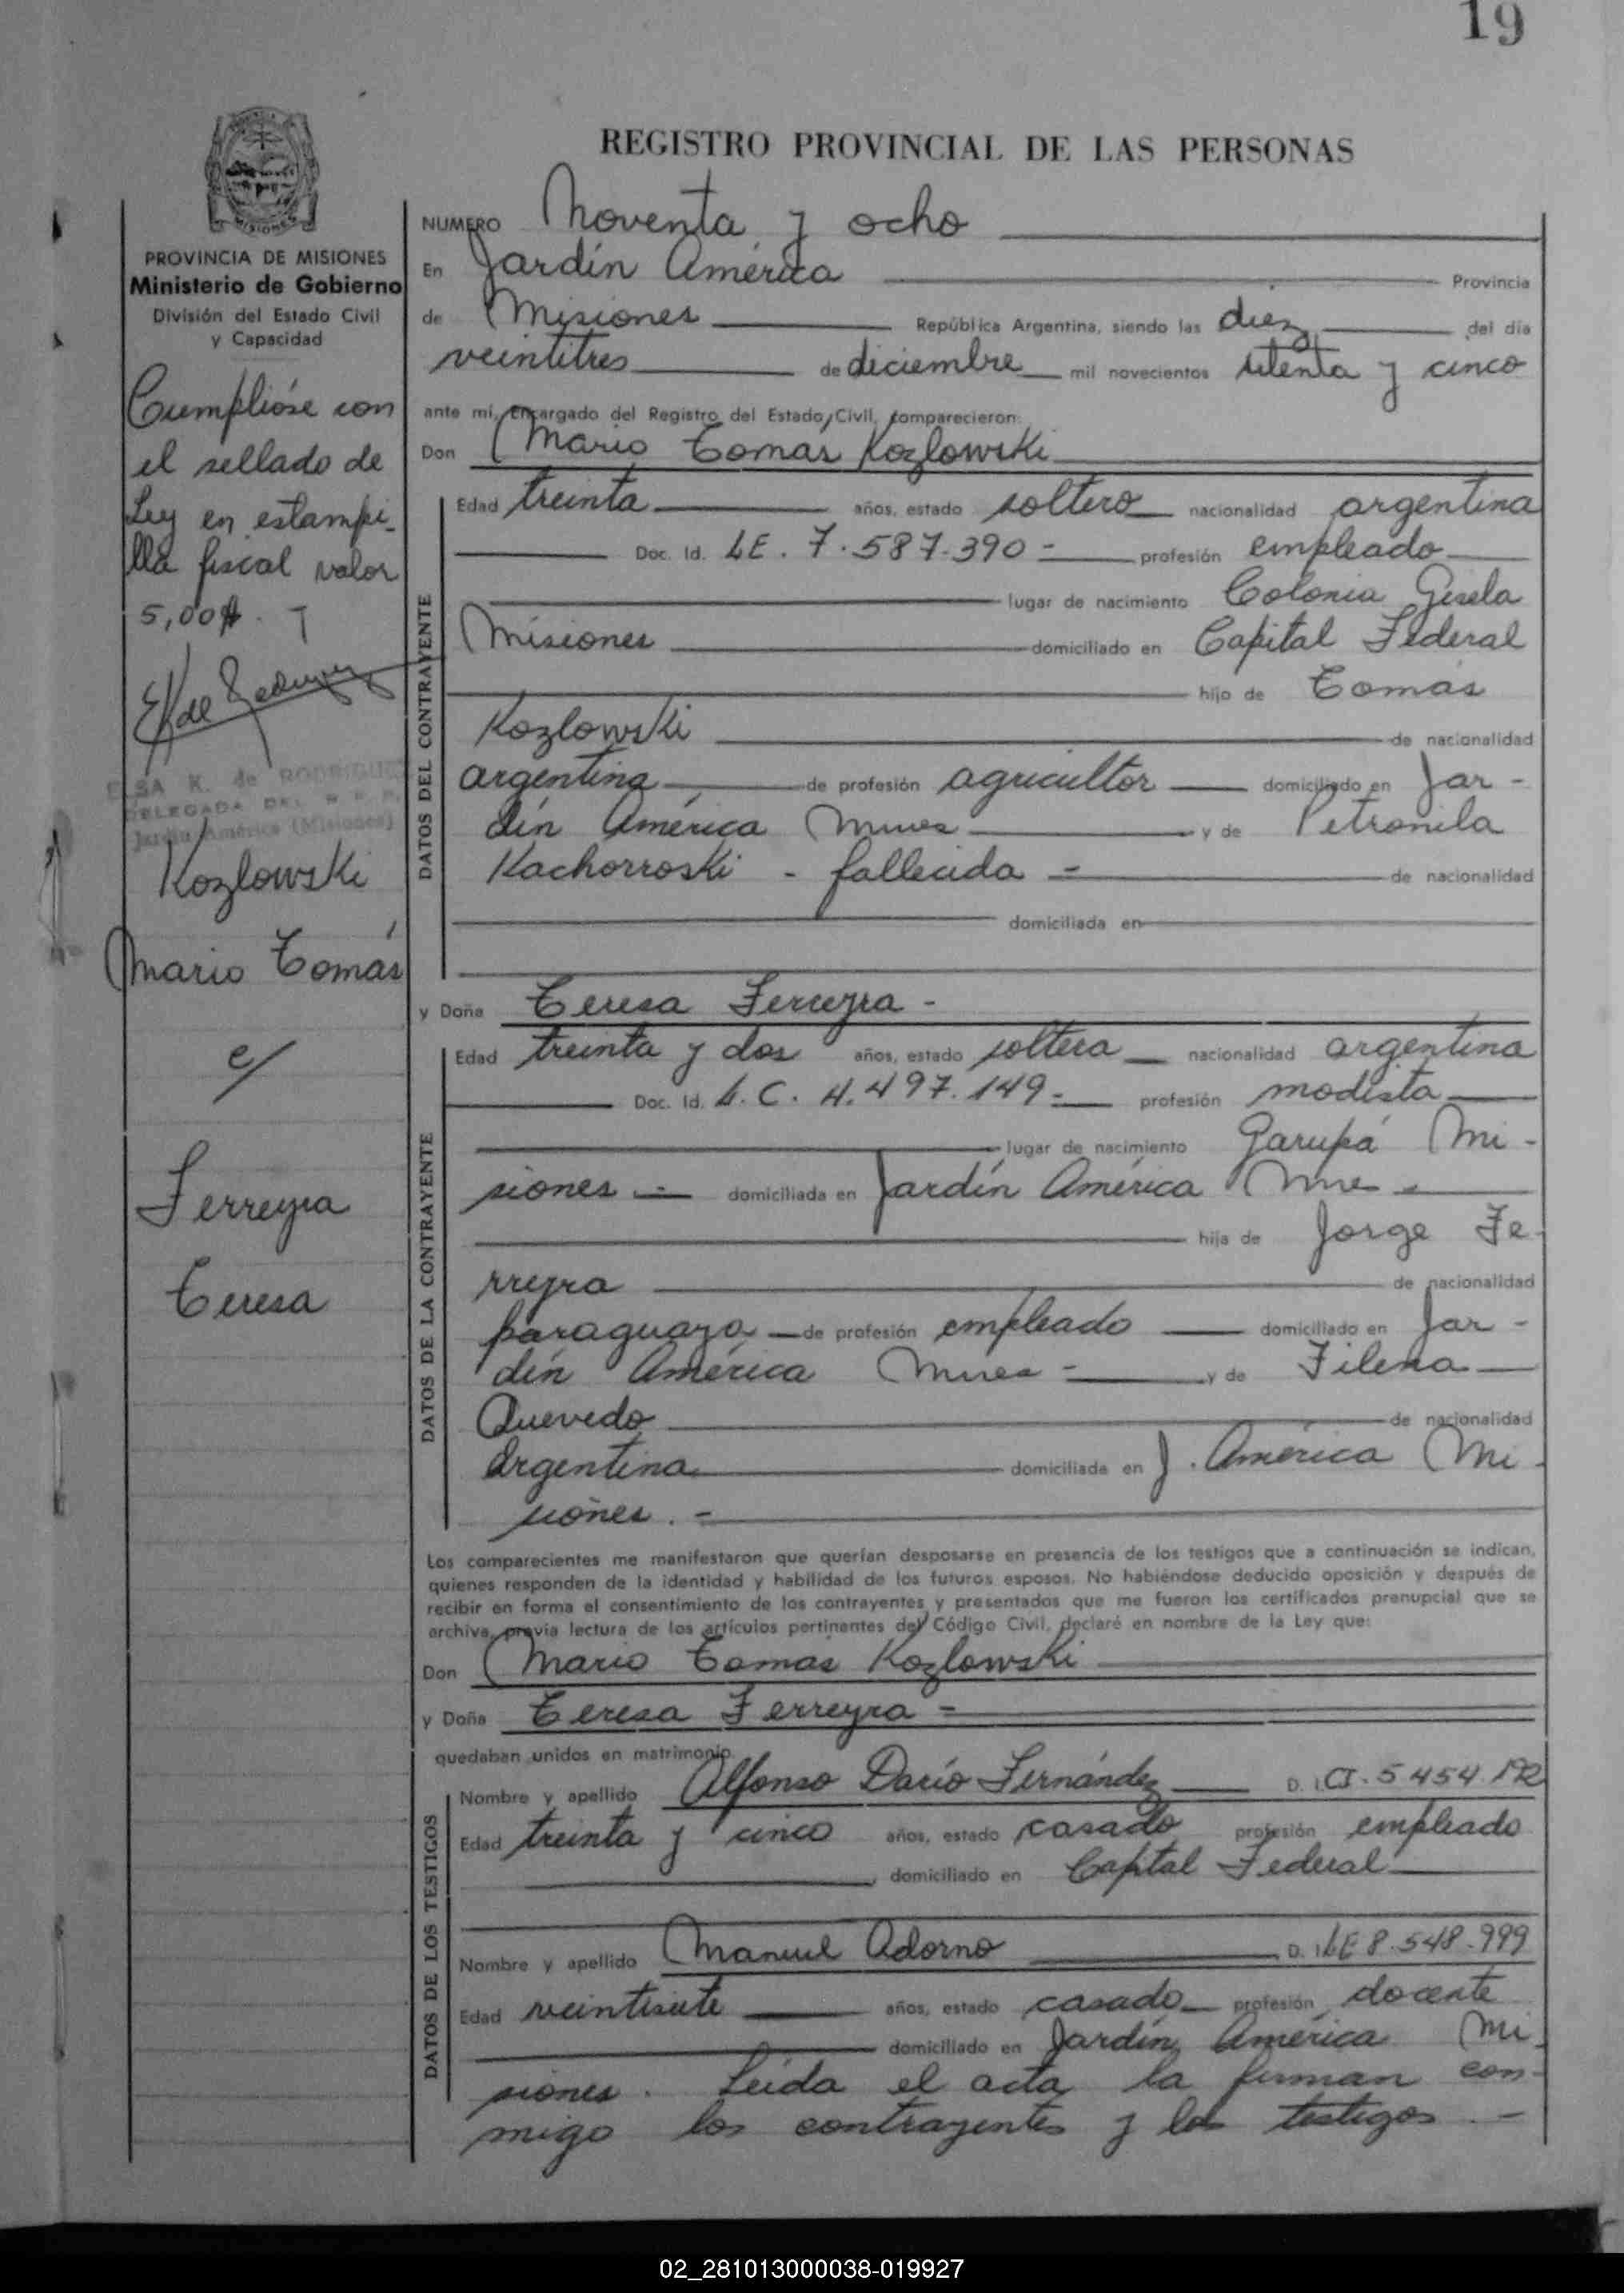 19
REGISTRO PROVINCIAL DE LAS PERSONAS
PROVINCIA DE MISIONES
Ministerio de Gobierno
División del Estado Civil
y Capacidad
Cumplióse con
el sellado de
Ley en estampi-
lla fiscal valor
5,00$.
ELSA K. de RODRIGUEZ
DELEGADA DEL R. P. P.
Jardín América (Misiones)
Kozlowski
Mario Tomás
c/
Ferreyra
Teresa
NUMERO Noventa y ocho
En Jardín América Provincia
de Misiones República Argentina, siendo las diez del día
veintitres de diciembre mil novecientos setenta y cinco
ante mí, Encargado del Registro del Estado Civil, comparecieron:
Don Mario Tomás Kozlowski
DATOS DEL CONTRAYENTE
Edad treinta años, estado soltero nacionalidad argentina
Doc. Id. LE. 7.587.390 - profesión empleado
lugar de nacimiento Colonia Gisela
Misiones domiciliado en Capital Federal
hijo de Tomás
Kozlowski de nacionalidad
argentina de profesión agricultor domiciliado en Jar-
dín América Mnes y de Petronila
Kachorroski - fallecida - de nacionalidad
domiciliada en
y Doña Teresa Ferreyra -
DATOS DE LA CONTRAYENTE
Edad treinta y dos años, estado soltera nacionalidad argentina
Doc. Id. L.C. 4.497.149- profesión modista
lugar de nacimiento Garupá Mi-
siones - domiciliada en Jardín América Mnes
hija de Jorge Fe-
rreyra de nacionalidad
paraguaya de profesión empleado domiciliado en Jar-
dín América Mnes - y de Filena
Quevedo de nacionalidad
Argentina domiciliada en J. América Mi-
siones. -
Los comparecientes me manifestaron que querían desposarse en presencia de los testigos que a continuación se indican,
quienes responden de la identidad y habilidad de los futuros esposos. No habiéndose deducido oposición y después de
recibir en forma el consentimiento de los contrayentes y presentados que me fueron los certificados prenupcial que se
archiva, previa lectura de los artículos pertinentes del Código Civil, declaré en nombre de la Ley que:
Don Mario Tomás Kozlowski
y Doña Teresa Ferreyra -
quedaban unidos en matrimonio.
DATOS DE LOS TESTIGOS
Nombre y apellido Alfonso Darío Fernández D. I. CI. 5454.172
Edad treinta y cinco años, estado casado profesión empleado
domiciliado en Capital Federal
Nombre y apellido Manuel Adorno D. I. LE 8.548.999
Edad veintisiete años, estado casado profesión docente
domiciliado en Jardín América Mi-
siones. Leída el acta la firman con-
migo los contrayentes y los testigos. -
02_281013000038-019927